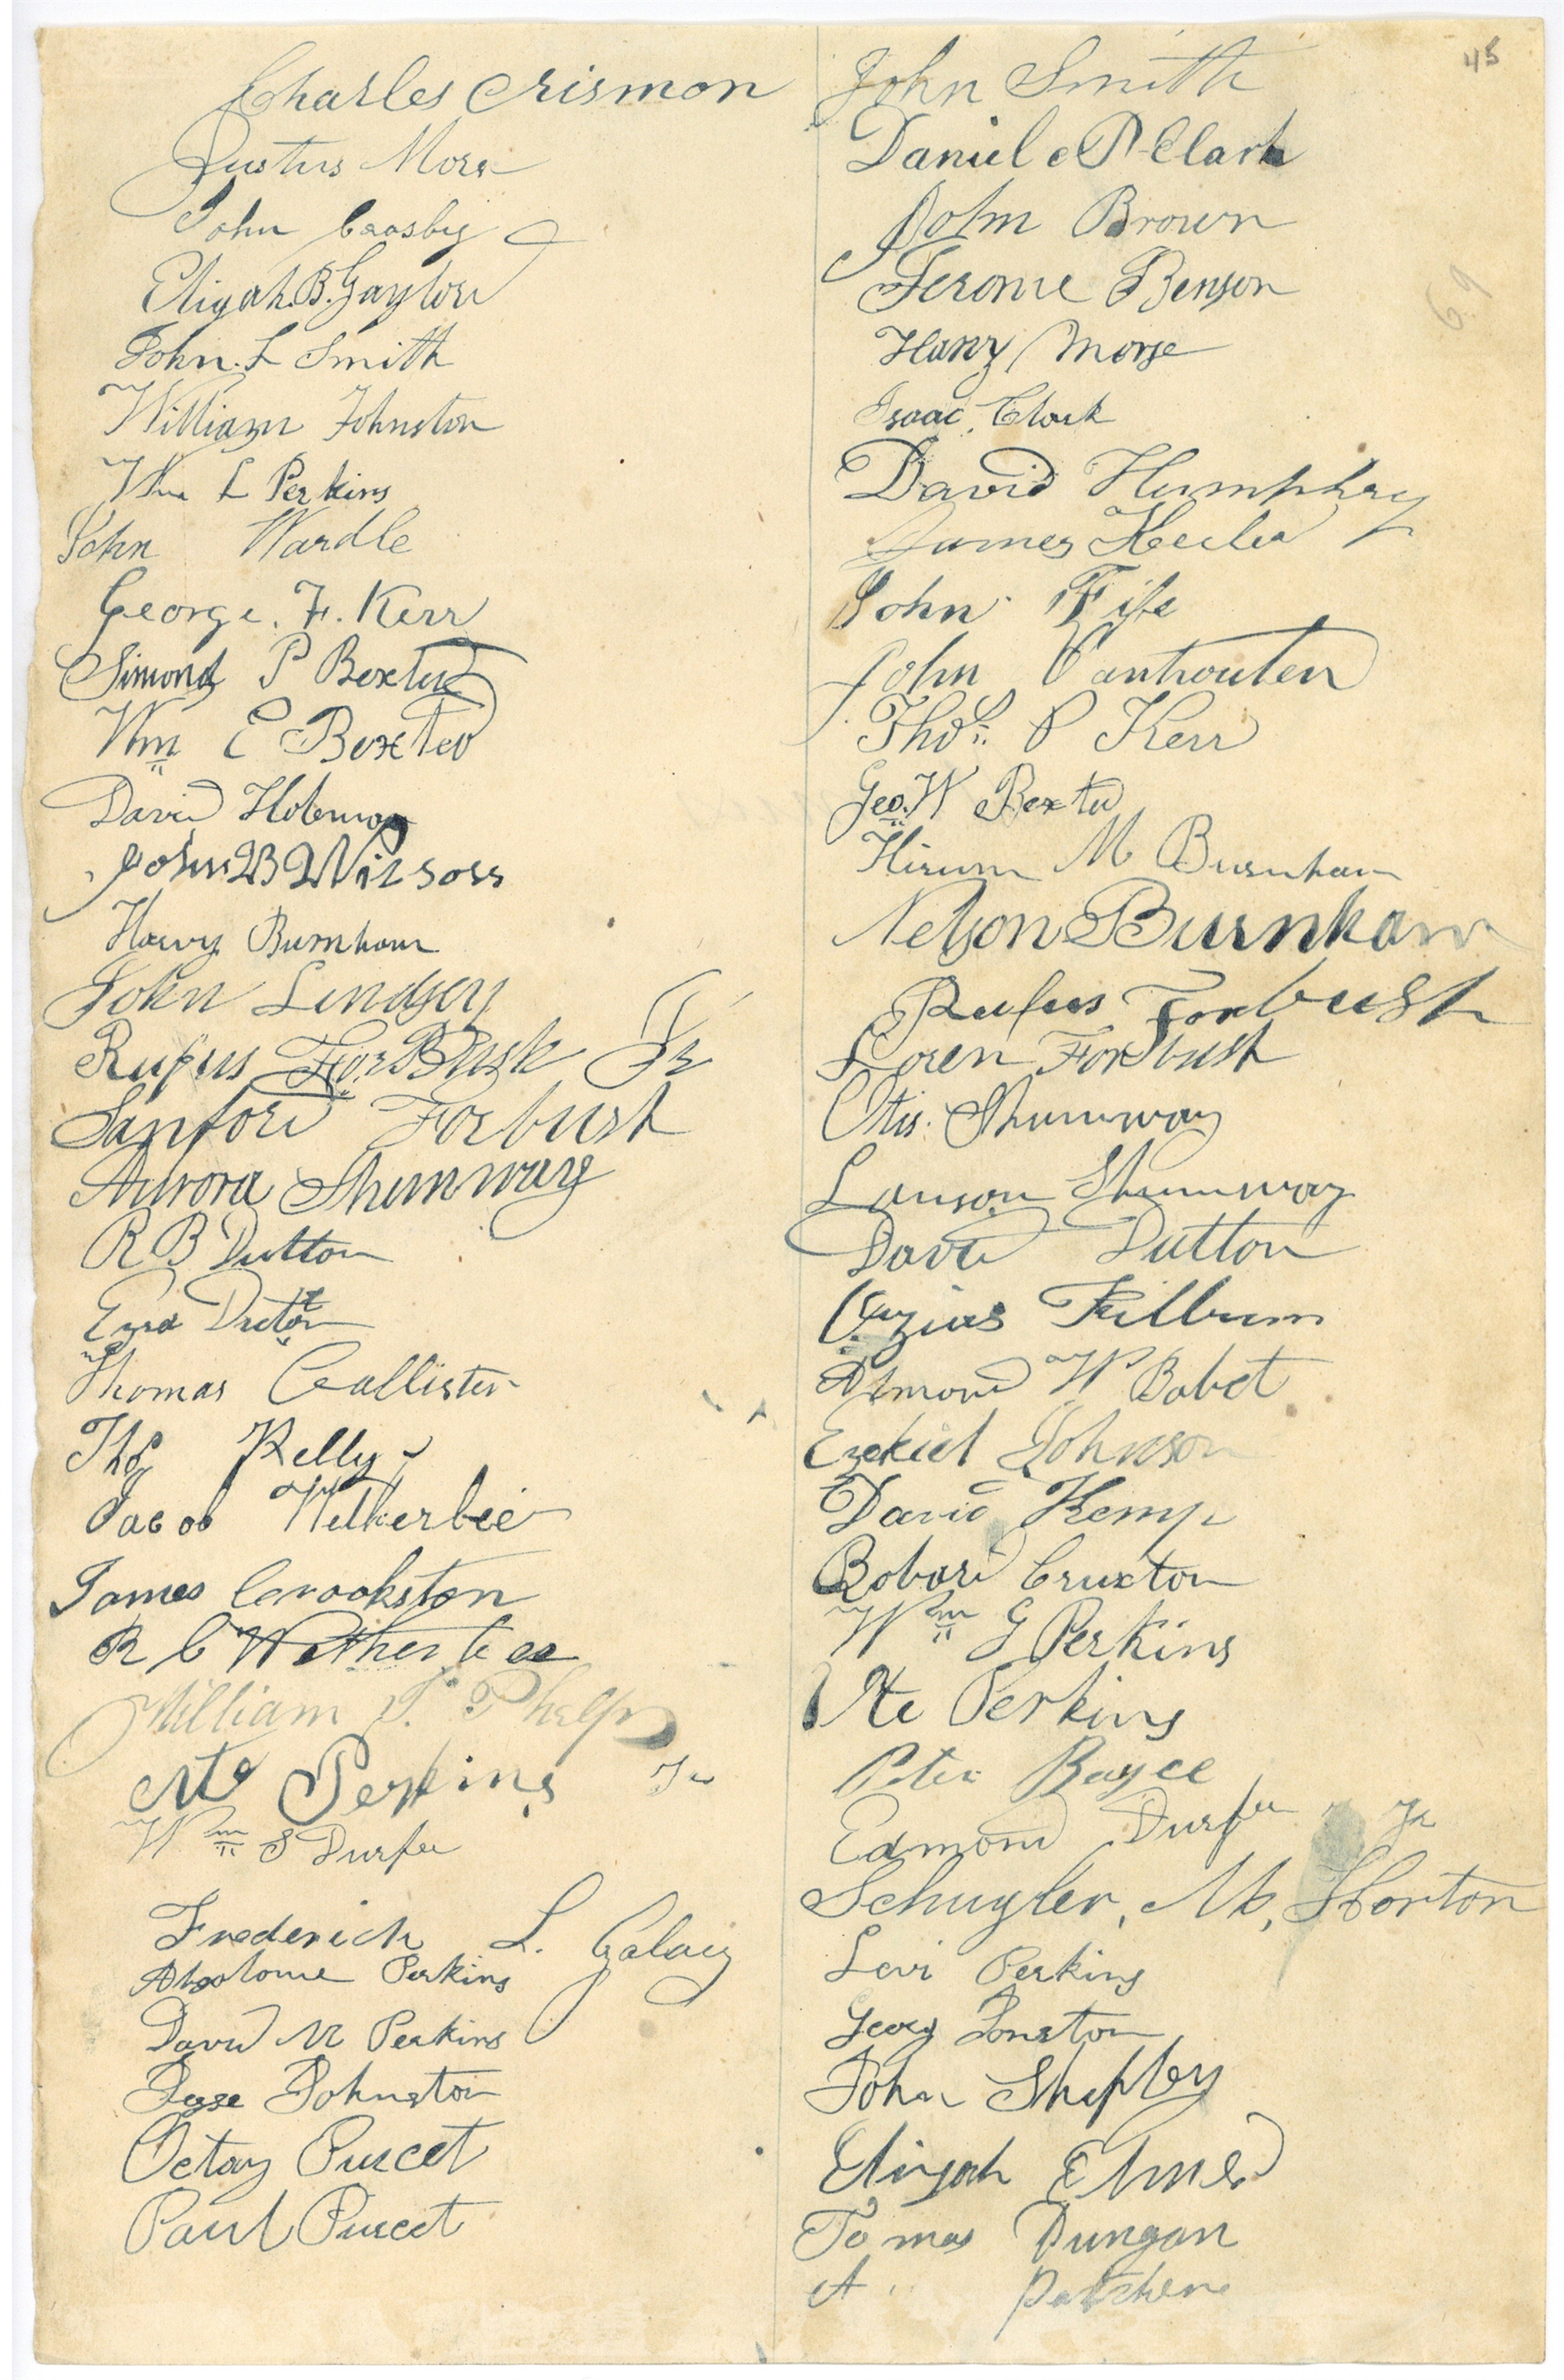 45
Charles Crismon
Justus Morse
John Crosby
Elijah B. Gaylord
John L Smith
William Johnston
Wm L Perkins
John Wardle
George. F. Kerr
Simond P Bexted
Wm E Bexted
David
John B Wilson
Harvy Burnham
John Lindsey
Rufus ForBush Jr
Sanford Forbush
Aurora Shumway
R B Dutton
Ezra Dutton
Thomas Callister
Thos Kelly
Jacob Wetherbee
James Crookston
R C Wetherbee
William T. Phelps
Ute Perkins Jr
Wm S Durfee
Frederick L.
Absolome Perkins
David M Perkins
Jesse Johnston
Octay Purcet
Paul Purcet
John Smith
Daniel P Clark
John Brown
Jerome Benson
Harry Morse
Isaac Clark
David Humphrey
James Heeler
John Fife
John Vanhouten
Thos. P Kerr
Geo. W Bexted
Hirum M Burnham
Nelson Burnham
Rufus Forbush
Loren Forbush
Otis Shumway
Lauson Shumway
David Dutton
Ozias Kilburn
Almond W Babet
Ezekiel Johnson
David Kemp
Robard Cruxton
Wm G Perkins
Ute Perkins
Peter Boyce
Edmond Durfee Jr
Schuyler, M, Horton
Levi Perkins
Georg Jonston
John Shipley
Elijah Elmer
Tomas Dungan
A Patchene
69